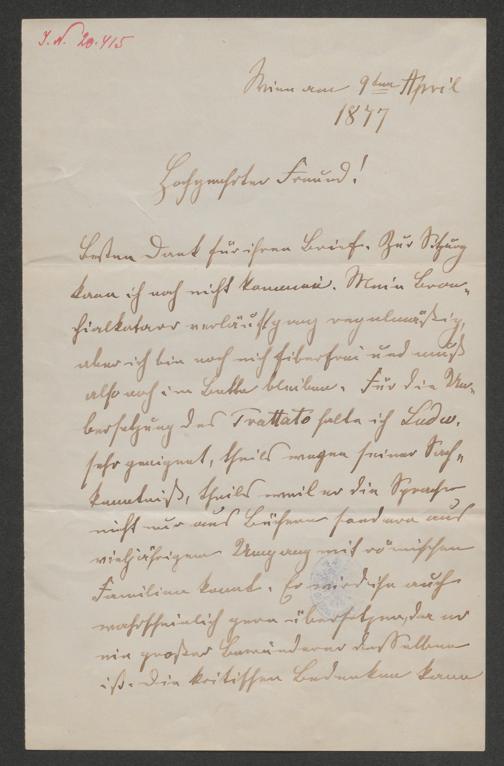 J.N. 20.415
Wien am 9ten April
1877
Hochgeehrter Freund!
Besten Dank für ihren Brief. Zur Sitzung
kann ich noch nicht kommen. Mein Bron-
chialkatarr verläuft ganz regelmäßig,
aber ich bin noch nich fiberfrei und muß
also noch im Bette bleiben. Für die Ue-
bersetzung des Trattato halte ich Ludw.
sehr geeignet, theils wegen seiner Sach-
kenntniß, theils weil er die Sprache
nicht nur aus Büchern sondern aus
vieljährigem Umgang mit römischen
Familien kennt. Er wird ihn auch
wahrscheinlich gern übersetzen, da er
ein großer Bewunderer desselben
ist. Die kritischen Bedenken kann